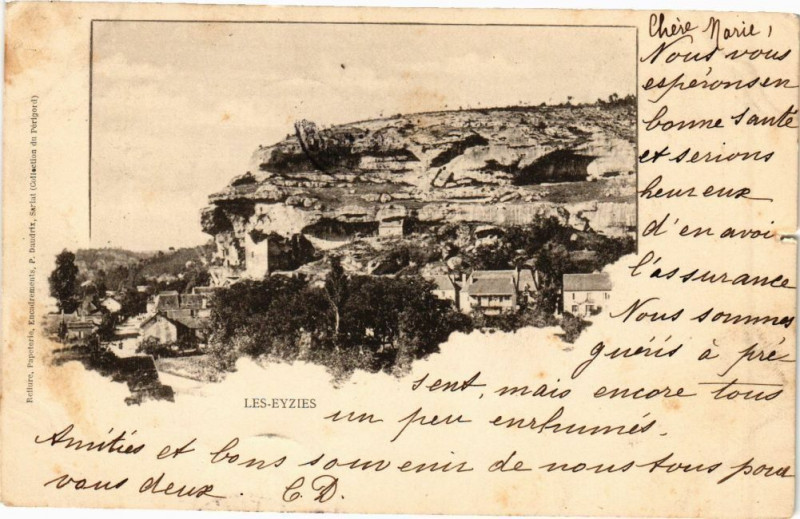 Chère Marie,
Nous vous
espérons en
bonne santé
et serions
heureux
d'en avoi
l'assurance
Nous sommes
guéris à pré
sent, mais encore tous
un peu enrhumés.
Amitiés et bons souvenir de nous tous pour
vous deux. C.D.
LES-EYZIES
Reliure, Papeterie, Encadrements, P. Daudrix, Sarlat (Collection du Périgord)